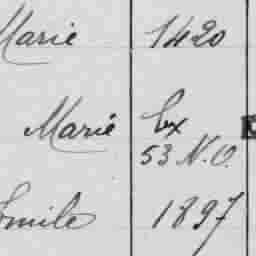 Marie 1420
Marie bx
53 N.O.
Emile 1897